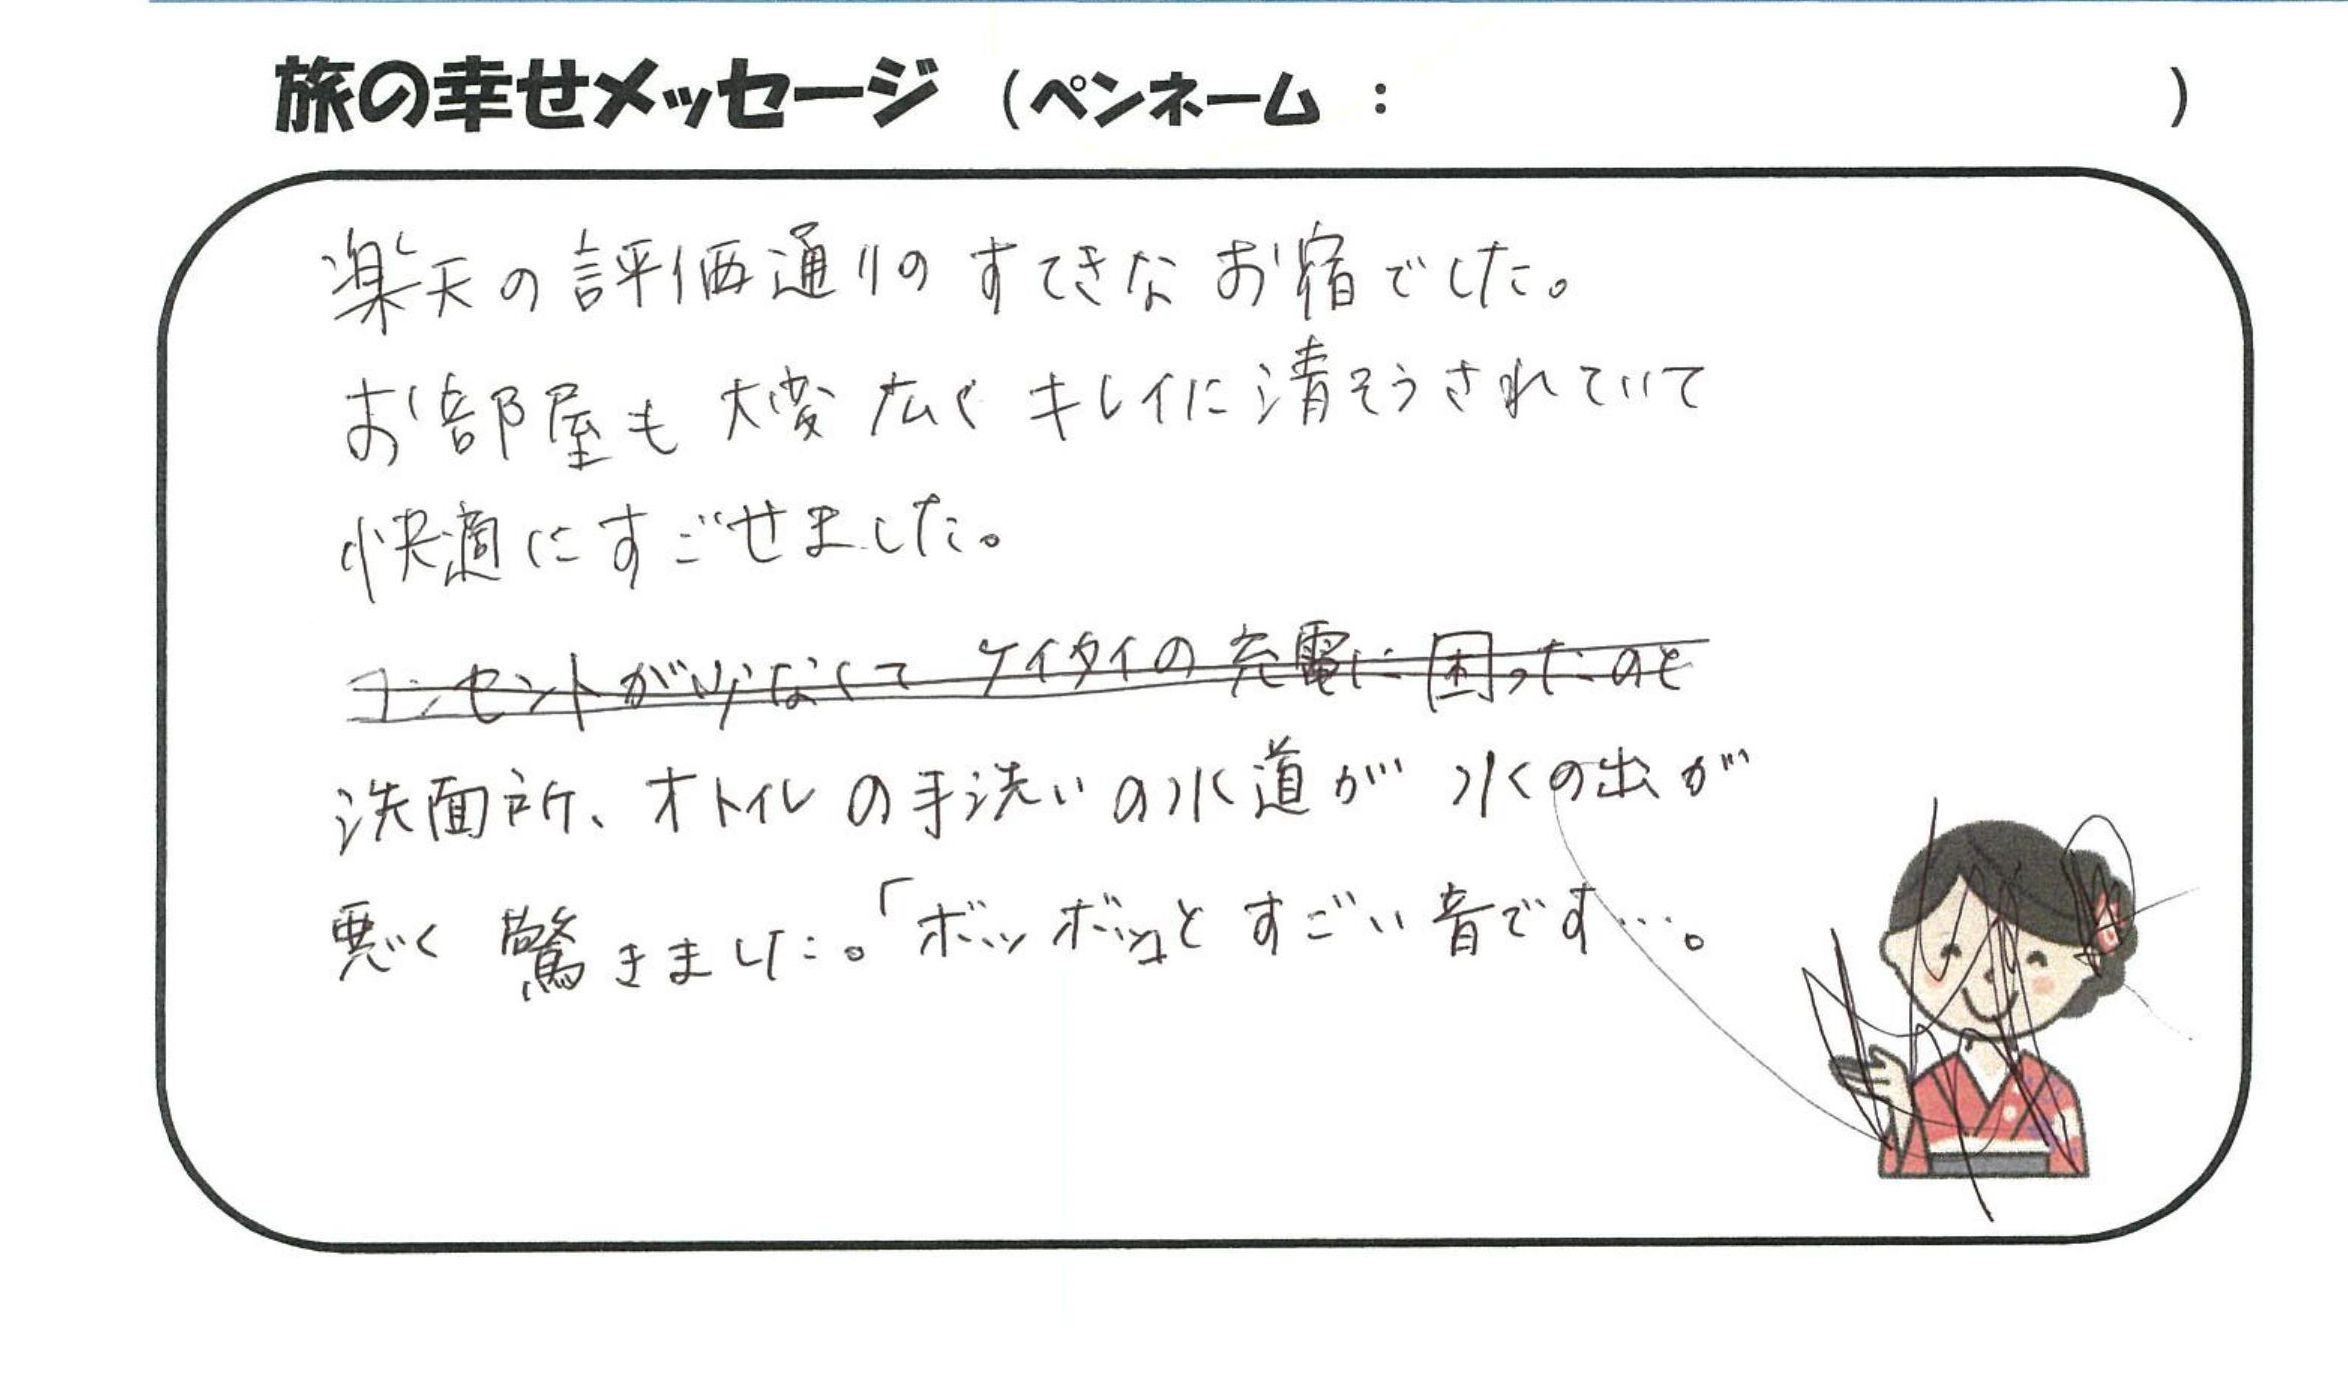 旅の幸せメッセージ (ペンネーム : )
楽天の評価通りのすてきなお宿でした。
お部屋も大変広くキレイに清そうされていて
快適にすごせました。
コンセントが少なくてケイタイの充電に困ったのと
洗面所、オトイレの手洗いの水道が水の出が
悪く驚きました。「ボッボッ」とすごい音です…。